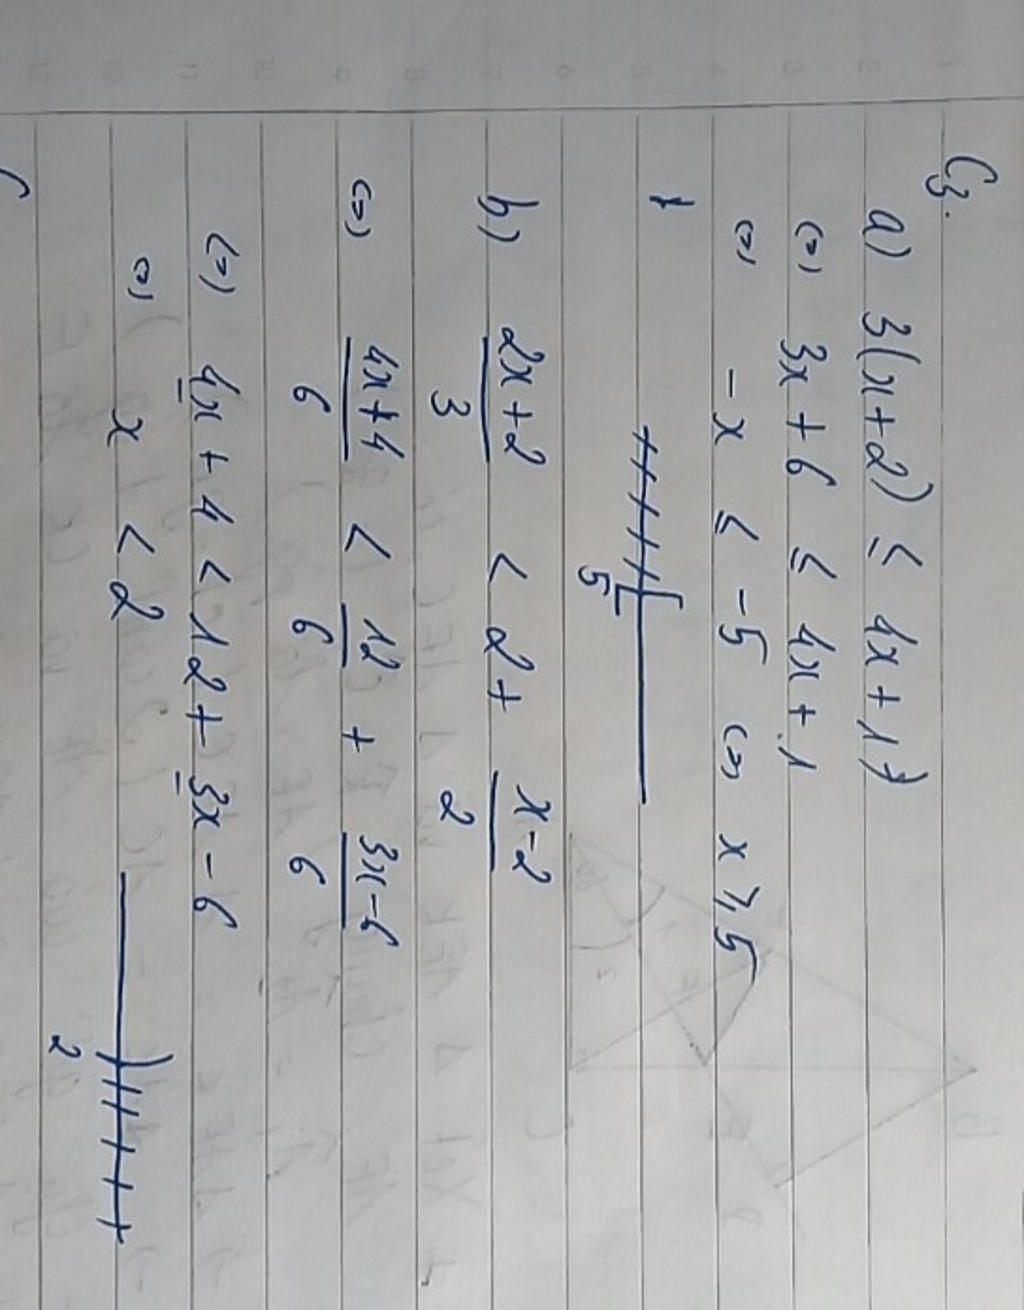 C3.
a) 3(x+2) ≤ 4x+1
<=> 3x+6 ≤ 4x+1
<=> -x ≤ -5 <=> x ≥ 5
5
b) (2x+2)/3 < 2 + (x-2)/2
<=> (4x+4)/6 < 12/6 + (3x-6)/6
<=> 4x+4 < 12+3x-6
<=> x < 2
2